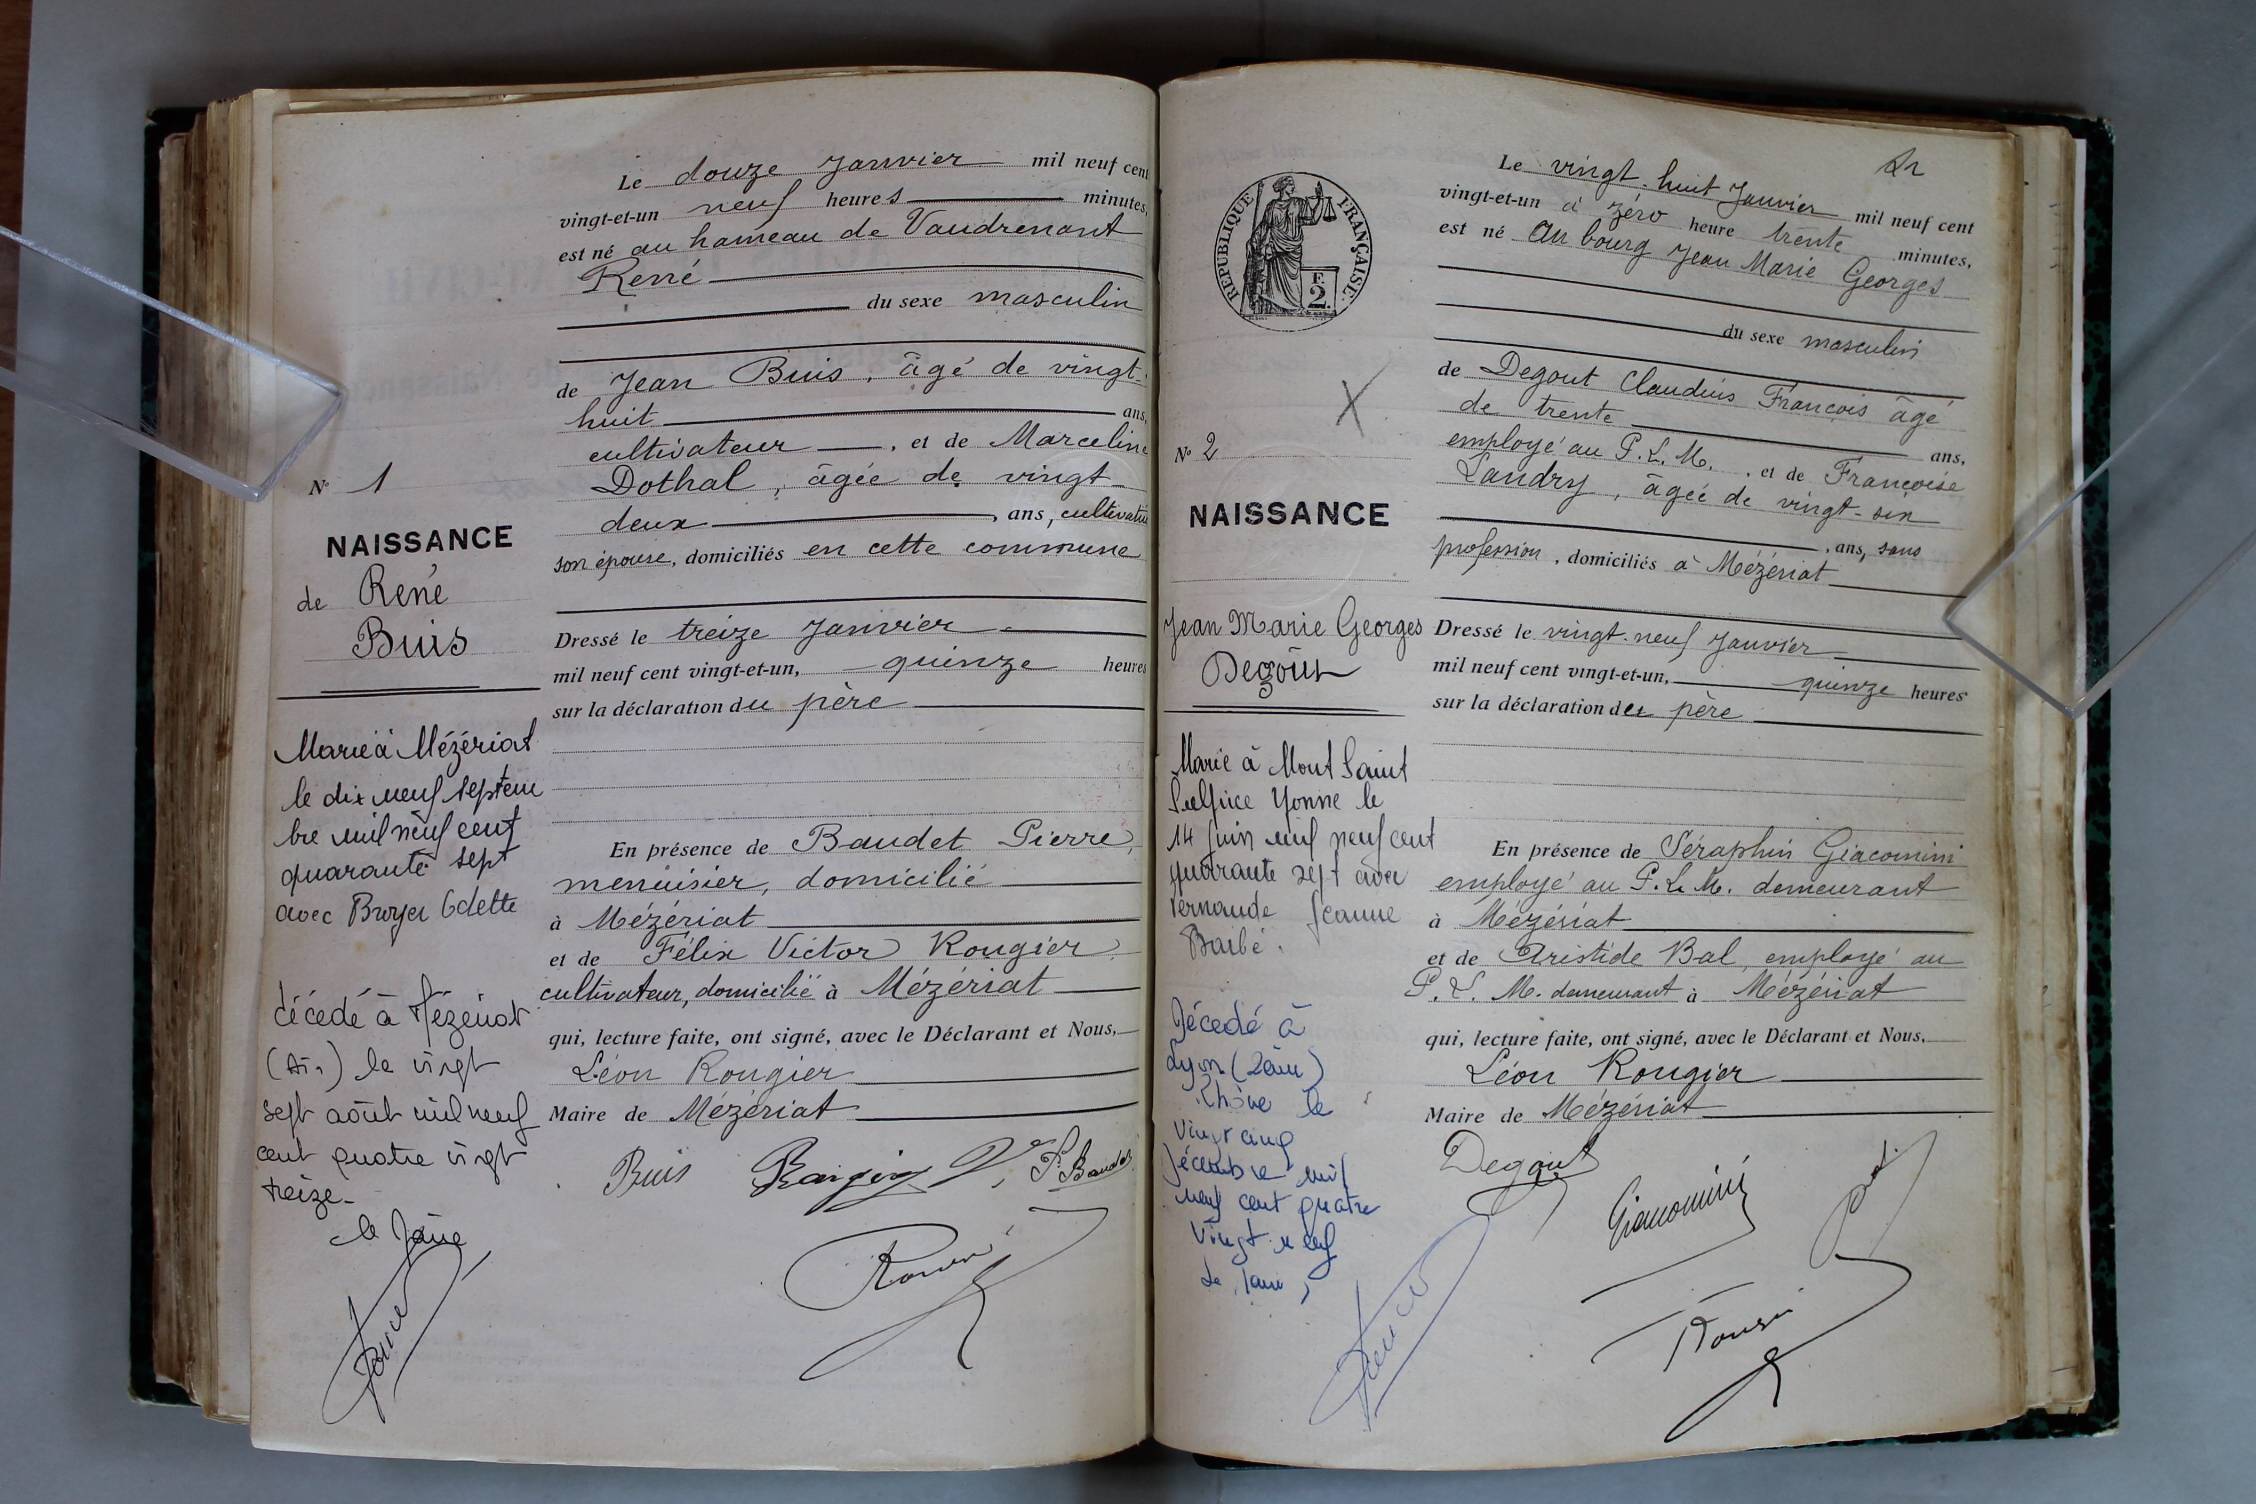 Le douze Janvier mil neuf cent
vingt-et-un neuf heures minutes,
est né au hameau de Vaudrenant
René
du sexe masculin
de Jean Buis, âgé de vingt-
huit ans,
cultivateur, et de Marceline
Dothal, âgée de vingt-
deux, ans, cultivatri
son épouse, domiciliés en cette commune
Dressé le treize Janvier
mil neuf cent vingt-et-un, quinze heures
sur la déclaration du père
En présence de Baudet Pierre,
menuisier, domicilié
à Mézériat
et de Félix Victor Rougier,
cultivateur, domicilié à Mézériat
qui, lecture faite, ont signé, avec le Déclarant et Nous,
Léon Rougier
Maire de Mézériat
Buis Rougier V. P. Baudet
Rougier
N° 1
NAISSANCE
de René
Buis
Marié à Mézériat
le dix neuf septem
bre mil neuf cent
quarante sept
avec Broyer Odette
décédé à Mézériat
(Ain) le vingt
sept août mil neuf
cent quatre vingt
treize-
le Maire
RÉPUBLIQUE FRANÇAISE
F.
2
N° 2
NAISSANCE
Jean Marie Georges
Degout
Marié à Mont Saint
Sulpice Yonne le
14 Juin mil neuf cent
quarante sept avec
Fernande Jeanne
Barbé.
Décedé à
Lyon (2ème)
Rhône le
vingt cinq
décembre mil
neuf cent quatre
vingt neuf
Le Maire,
Le vingt-huit Janvier mil neuf cent
vingt-et-un à zéro heure trente minutes,
est né au bourg Jean Marie Georges
du sexe masculin
de Degout Claudius François âgé
de trente ans,
employé au P. L. M., et de Françoise
Landry, âgée de vingt-six
, ans, sans
profession, domiciliés à Mézériat
Dressé le vingt-neuf Janvier
mil neuf cent vingt-et-un, quinze heures
sur la déclaration du père
En présence de Séraphin Giacomini
employé au P. L. M. demeurant
à Mézériat
et de Aristide Bal, employé au
P. L. M. demeurant à Mézériat
qui, lecture faite, ont signé, avec le Déclarant et Nous,
Léon Rougier
Maire de Mézériat
Degout
Giacomini
Rougier